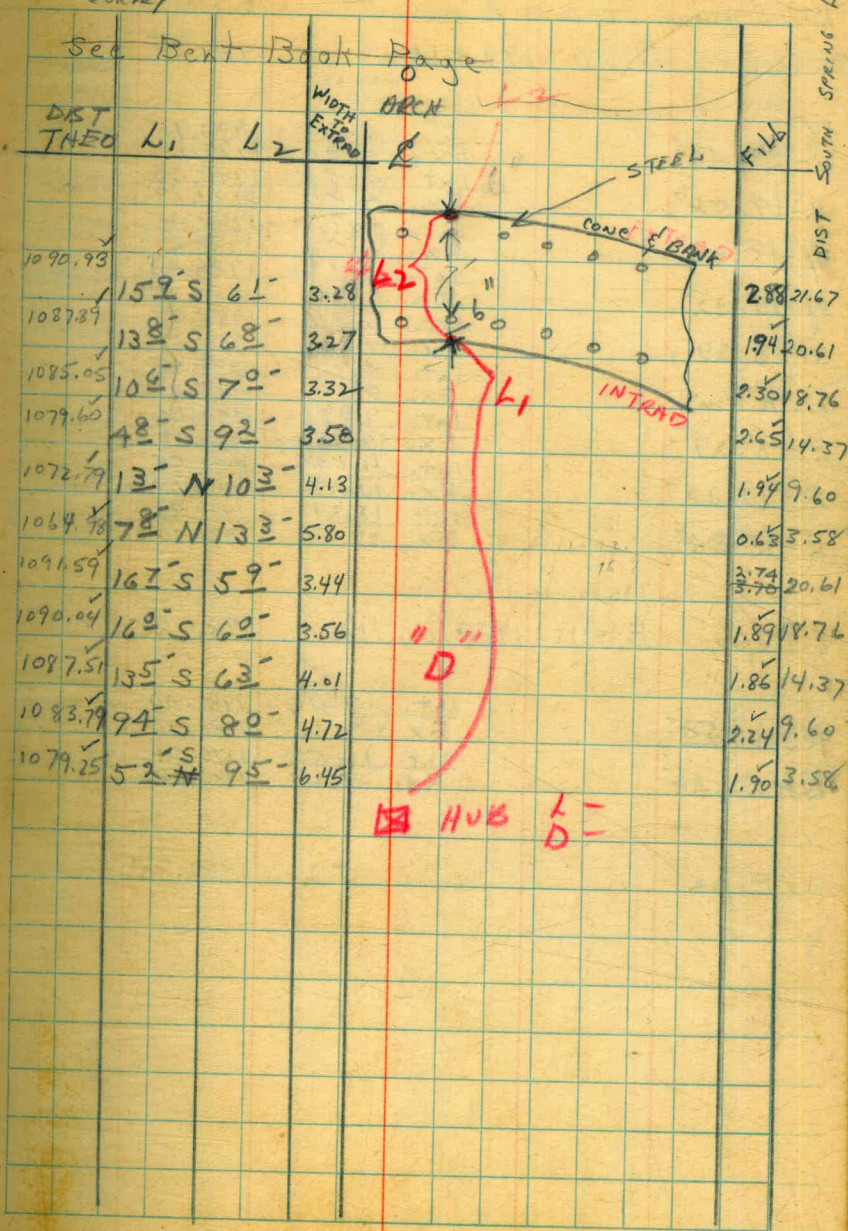 See Bent Book Page
DIST THEO L1 L2 WIDTH TO EXTRAD ARCH ℄ L2 STEEL FILL DIST SOUTH SPRING
CONC & BANK
1090.93 159 S 61 3.28 2.88 21.67
1087.89 138 S 68 3.27 1.94 20.61
1085.05 106 S 70 3.32 2.30 18.76
1079.60 48 S 92 3.58 2.65 14.37
1072.79 13 N 103 4.13 1.94 9.60
1064.98 78 N 133 5.80 0.63 3.58
1091.59 167 S 59 3.44 2.74 20.61
1090.04 160 S 60 3.56 1.89 18.76
1087.51 135 S 63 4.01 1.86 14.37
1083.79 94 S 80 4.72 2.24 9.60
1079.25 52 S 95 6.45 1.90 3.58
L2
L1
INTRAD
"D"
HUB L =
D =